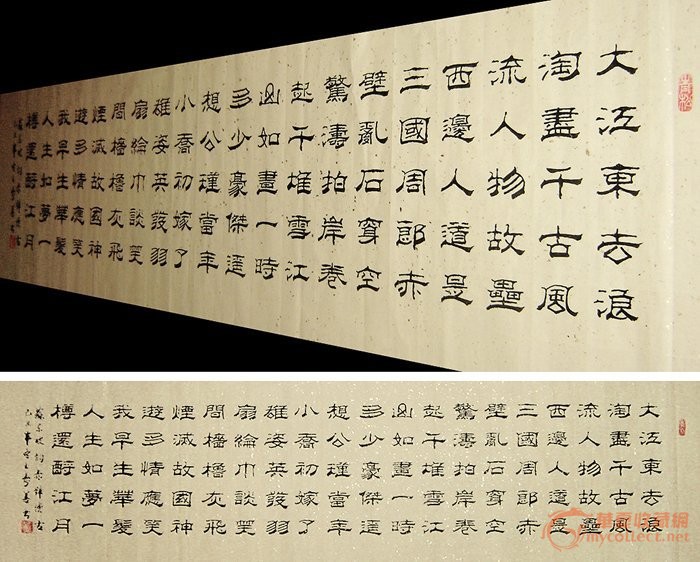 大江東去浪
淘盡千古風
流人物故壘
西邊人道是
三國周郎赤
壁亂石穿空
驚濤拍岸卷
起千堆雪江
山如畫一時
多少豪傑遥
想公瑾當年
小喬初嫁了
雄姿英發羽
扇綸巾談笑
間檣櫓灰飛
煙滅故國神
遊多情應笑
我早生華髮
人生如夢一
樽還酹江月
大江東去浪
淘盡千古風
流人物故壘
西邊人道是
三國周郎赤
壁亂石穿空
驚濤拍岸卷
起千堆雪江
山如畫一時
多少豪傑遥
想公瑾當年
小喬初嫁了
雄姿英發羽
扇綸巾談笑
間檣櫓灰飛
煙滅故國神
遊多情應笑
我早生華髮
人生如夢一
樽還酹江月
蘇東坡詞赤壁懷古
華夏收藏網
mycollect.net